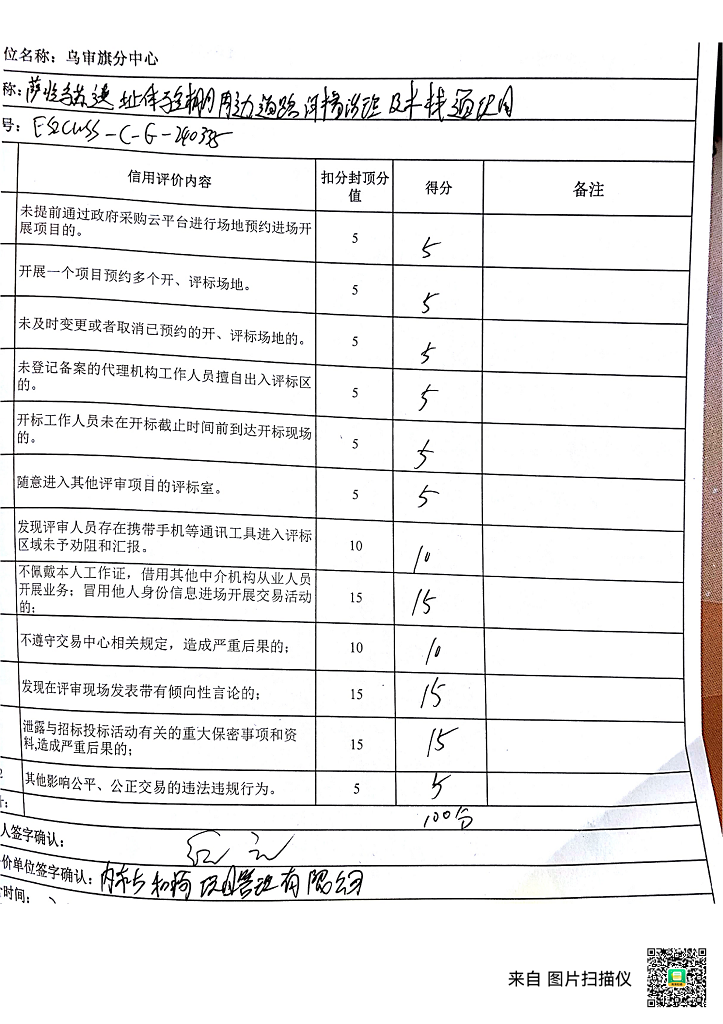 位名称：乌审旗分中心
称：萨拉乌苏遗址体验棚周边道路
号：ESZCWSS-C-G-240335
信用评价内容 扣分封顶分值 得分 备注
未提前通过政府采购云平台进行场地预约进场开展项目的。 5 5
开展一个项目预约多个开、评标场地。 5 5
未及时变更或者取消已预约的开、评标场地的。 5 5
未登记备案的代理机构工作人员擅自出入评标区的。 5 5
开标工作人员未在开标截止时间前到达开标现场的。 5 5
随意进入其他评审项目的评标室。 5 5
发现评审人员存在携带手机等通讯工具进入评标区域未予劝阻和汇报。 10 10
不佩戴本人工作证，借用其他中介机构从业人员开展业务；冒用他人身份信息进场开展交易活动的； 15 15
不遵守交易中心相关规定，造成严重后果的； 10 10
发现在评审现场发表带有倾向性言论的； 15 15
泄露与招标投标活动有关的重大保密事项和资料,造成严重后果的； 15 15
2 其他影响公平、公正交易的违法违规行为。 5 5
计： 100分
人签字确认：
价单位签字确认：内蒙古和骑项目管理有限公司
时间：
来自 图片扫描仪